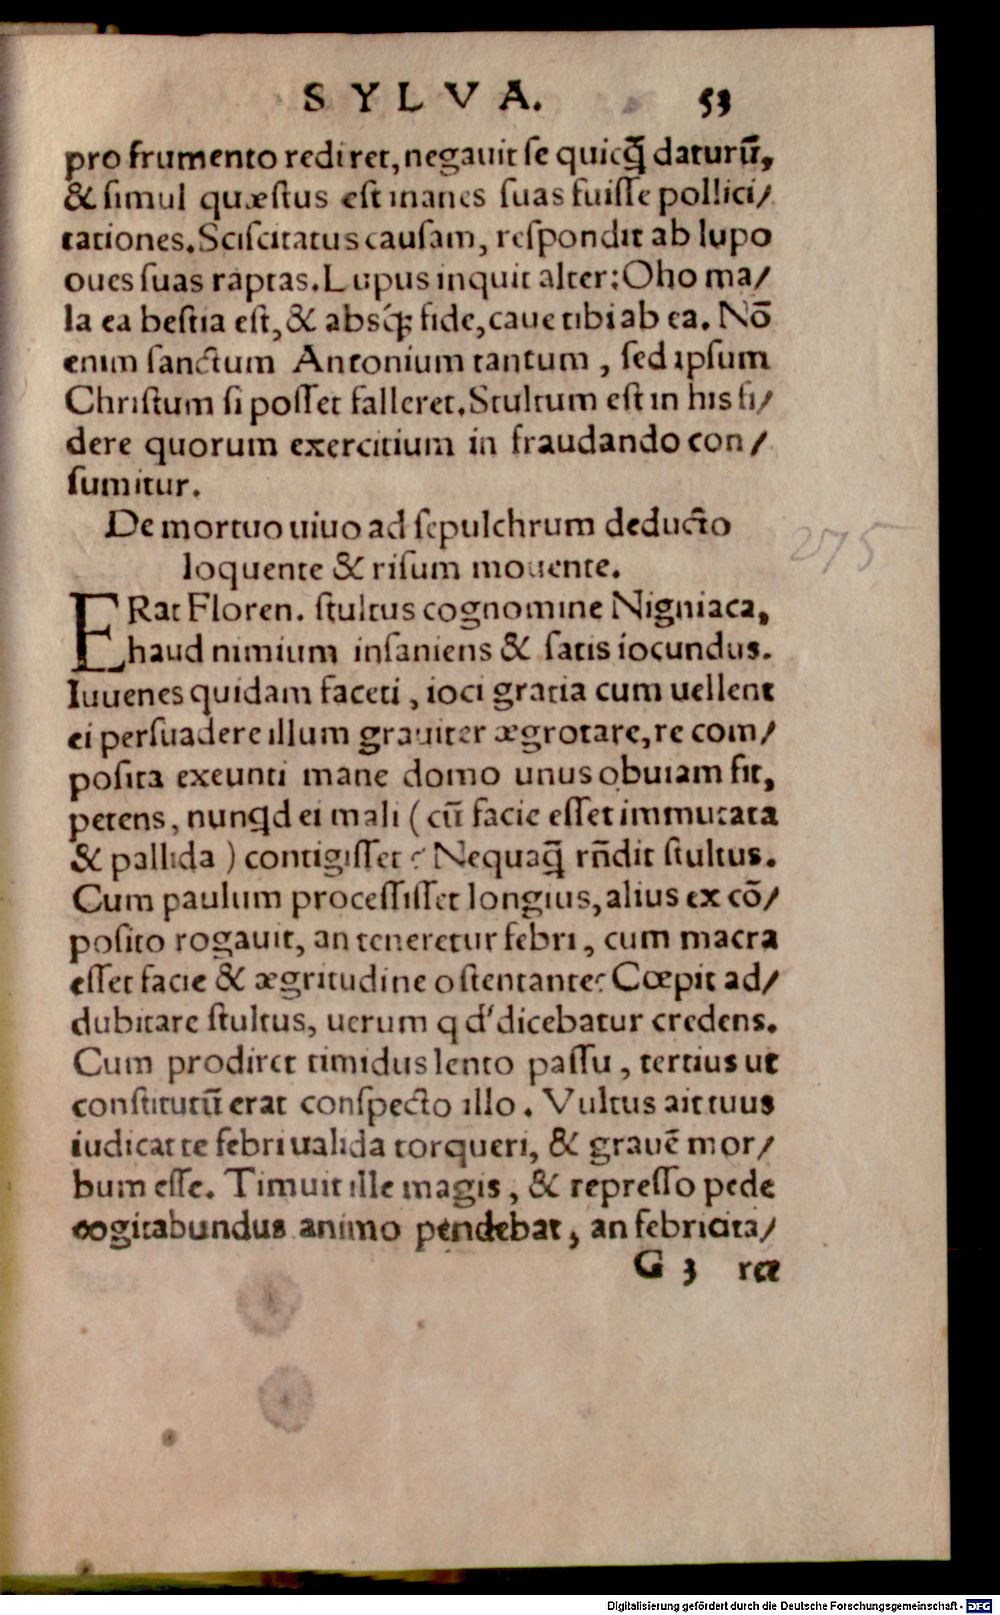 SYLVA. 53
pro frumento rediret, negauit se quicq̃ daturũ,
& simul quæstus est inanes suas fuisse pollici/
tationes. Sciscitatus causam, respondit ab lupo
oues suas raptas. Lupus inquit alter: Oho ma/
la ea bestia est, & absq́; fide, caue tibi ab ea. Nõ
enim sanctum Antonium tantum, sed ipsum
Christum si posset falleret. Stultum est in his fi/
dere quorum exercitium in fraudando con/
sumitur.
De mortuo uiuo ad sepulchrum deducto
loquente & risum mouente.
ERat Floren. stultus cognomine Nigniaca,
haud nimium insaniens & satis iocundus.
Iuuenes quidam faceti, ioci gratia cum uellent
ei persuadere illum grauiter ægrotare, re com/
posita exeunti mane domo unus obuiam fit,
petens, nunqd ei mali (cũ facie esset immutata
& pallida) contigisset? Nequaq̃ rñdit stultus.
Cum paulum processisset longius, alius ex cõ/
posito rogauit, an teneretur febri, cum macra
esset facie & ægritudine ostentante? Cœpit ad/
dubitare stultus, uerum q d' dicebatur credens.
Cum prodiret timidus lento passu, tertius ut
constitutũ erat conspecto illo. Vultus ait tuus
iudicat te febri ualida torqueri, & grauẽ mor/
bum esse. Timuit ille magis, & represso pede
cogitabundus animo pendebat, an febricita/
G 3 ret
275
Digitalisierung gefördert durch die Deutsche Forschungsgemeinschaft - DFG